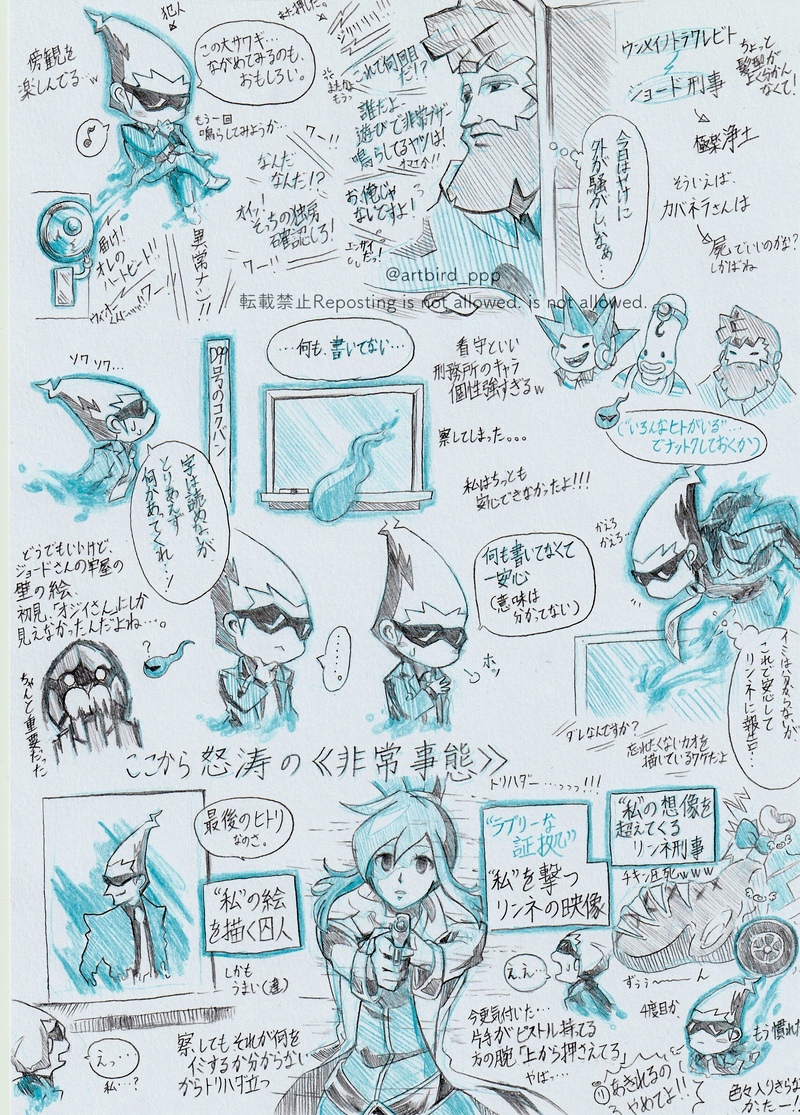 犯人
傍観を
楽しんでる…w
この大サワギ…
ながめてみるのも、
おもしろい。
もう一回
鳴らしてみようか…
ワー!!
なんだ
なんだ!?
オイッ!
そっちの独房
確認しろ!
ワー!!
異常ナシ!!
届け!
オレの
ハートビート!!
また押した。
ジリリリ!!!
これで何回目
だ!?
誰だよ
遊びで非常ブザー
鳴らしてるヤツは!
お、俺じゃ
ないですよ!
今日はヤケに
外が騒がしいなぁ…
ウンメイノトラワレビト
ジョード刑事
ちょっと
髪型が
よく分かん
なくて!
極楽浄土
そういえば、
カバネラさんは
屍でいいのかな?
しかばね
@artbird_ppp
転載禁止Reposting is not allowed. is not allowed.
ソワソワ…
D99号のコクバン
…何も、書いてない…
看守といい
刑務所のキャラ
個性強すぎるw
察してしまった。。。
私はちっとも
安心できなかったよ!!!
("いろんなヒトがいる"…
でナットクしておくか)
字は読めないが
とりあえず
何かあってくれ…!
どうでもいいけど、
ジョードさんの牢屋の
壁の絵
初見、「オジイさん」にしか
見えなかったんだよね…。
?
ちゃんと重要だった
……。
何も書いてなくて
一安心
(意味は
分かってない)
ホッ
かえろ
かえろ…
イミはワカらないが
これで安心して
リンネに報告…
ダレなんですか?
忘れたくないカオを
描いているワケだよ
ここから 怒涛の《非常事態》
最後のヒトリ
なのさ。
"私"の絵
を描く囚人
しかも
うまい(違)
えっ…
私…?
察してもそれが何を
イミするか分からない
からトリハダ立つ
トリハダ……っっっ!!!
"ラブリーな
証拠"
"私"を撃つ
リンネの映像
"私"の想像を
超えてくる
リンネ刑事
チキン圧死www
ずぅぅ〜〜ん
ええ…
今更気付いた…
片手がピストル持ってる
方の腕「上から押さえてる」
やばっ…
4度目か
もう慣れた
あきれるの
やめてよ!!
色々入りきらな
かったー!!